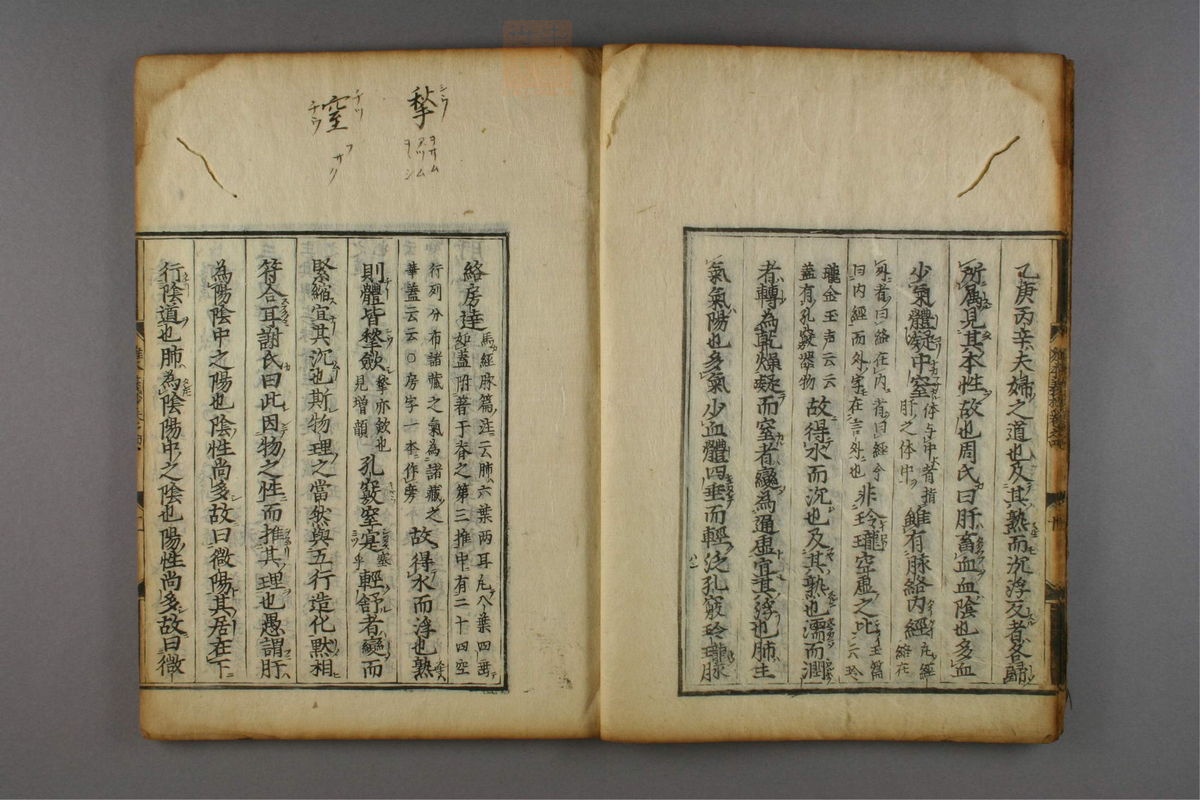 乙庚丙辛夫婦之道也及其熟而沉浮反者各歸
所属見其本性故也周氏曰肝畜血血陰也多血
少氣體凝中窒体与中者指肝之体中雖有脉絡内經
外者曰絡在内者曰經今
曰内經而外字在言外也非玲瓏空虚之比
瓏金玉声云云
蓋有孔竅故得水而沉也及其熟也濡而潤
者轉為乾燥凝而窒者變為通虚宜其浮也肺主
氣氣陽也多氣少血體四垂而輕泛孔竅玲瓏脉
挚 シウ ヲサム アツム
窒 チツ フサク
絡房達馬經脉篇注云肺六葉兩耳凡八葉四垂
如蓋附著于脊之第三椎中有二十四空
行列分布諸藏之氣為諸藏之
華蓋云云○房字一本作旁故得水而浮也熟
則體皆揫歛揫亦歛也見增韻孔竅窒塞輕舒者變而
緊縮宜其沉也斯物理之當然與五行造化黙相
符合耳謝氏曰此因物之性而推其理也愚謂肝
為陽陰中之陽也陰性尚多故曰微陽其居在下
行陰道也肺為陰陽中之陰也陽性尚多故曰微